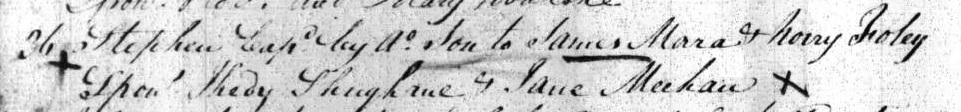 26 Stephen Capd by Do. Son to James Mara & Norry Foley
Spons Thedy Shughrue & Jane Meehan X